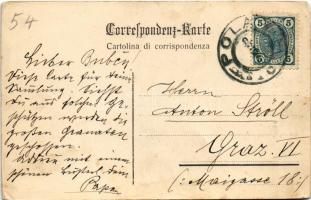 54
Correspondenz-Karte
Cartolina di corrispondenza
POLA
5 5
Lieber Buben
Diese Karte für deine
Samlung. Siehst
du aus solchen Ge-
schützen werden die
großen Granaten
geschossen.
Adieu mit einem
schönen
Papa
Herrn
Anton Ströll
Graz. VI
(: Maigasse 18 :)